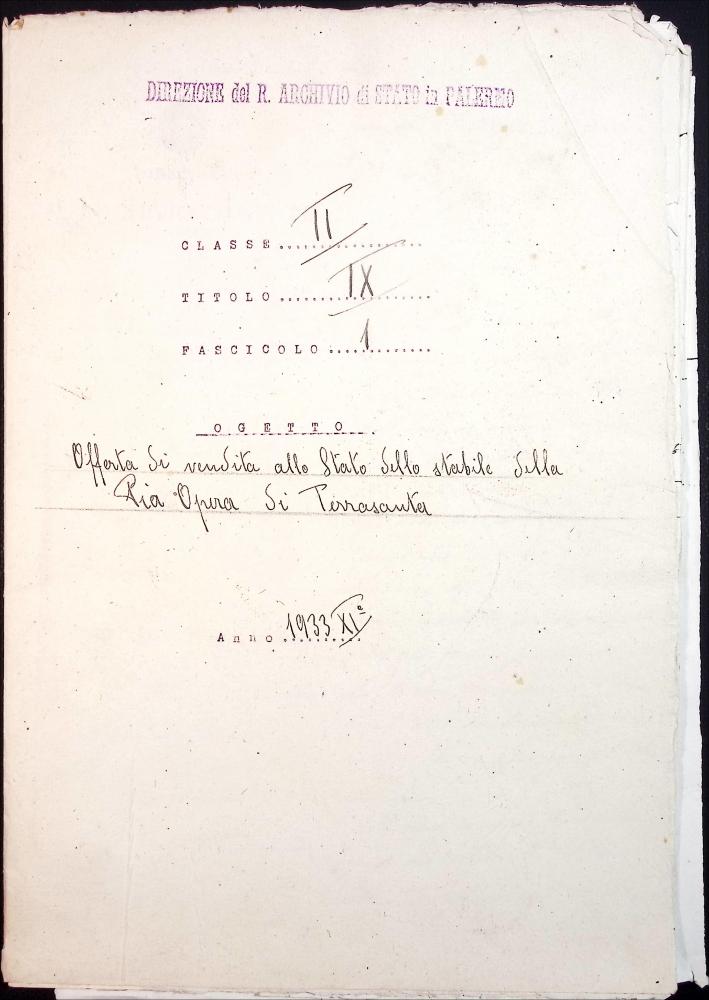 DIREZIONE del R. ARCHIVIO di STATO in PALERMO
CLASSE II
TITOLO IX
FASCICOLO 1
OGETTO
Offerta di vendita allo Stato dello stabile della
Pia Opera di Terrasanta
Anno 1933 XIº